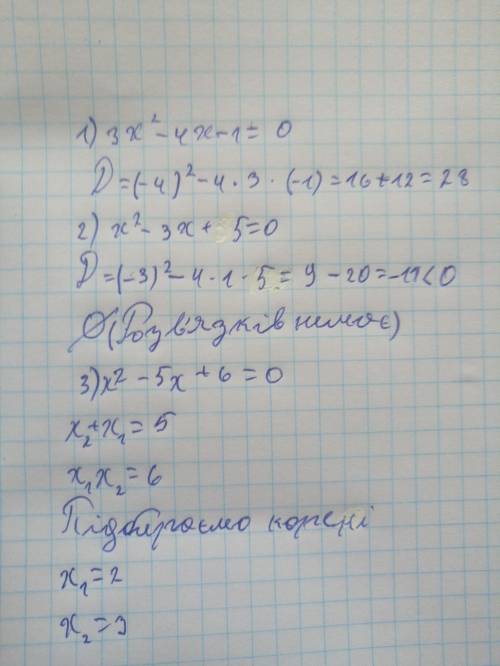 1) 3x² - 4x - 1 = 0
D = (-4)² - 4 · 3 · (-1) = 16 + 12 = 28
2) x² - 3x + 5 = 0
D = (-3)² - 4 · 1 · 5 = 9 - 20 = -11 < 0
∅ (Розв'язків немає)
3) x² - 5x + 6 = 0
x₂ + x₁ = 5
x₁x₂ = 6
Підбираємо корені
x₁ = 2
x₂ = 3